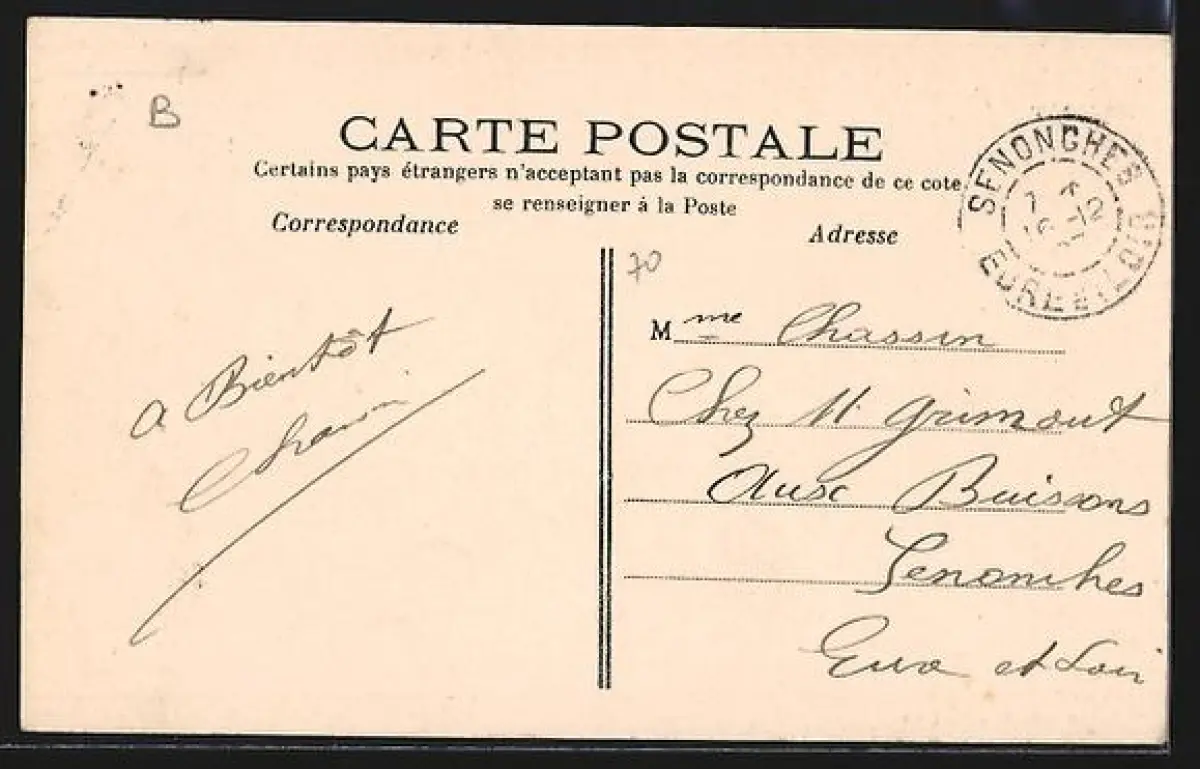 B
CARTE POSTALE
Certains pays étrangers n'acceptant pas la correspondance de ce cote
se renseigner à la Poste
Correspondance
Adresse
SENONCHES
7 12
16
EURE ET LOIR
70
a Bientôt
Mme Chassin
Chez M. Grimout
Aux Buissons
Senonches
Eure et Loir